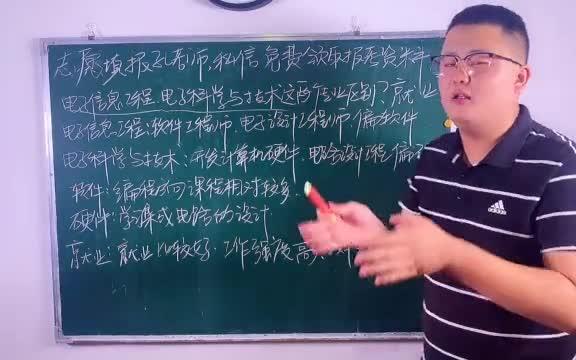 志愿填报孔老师,私信免费领取报考资料
电子信息工程.电子科学与技术这两个专业区别?就业
电子信息工程:软件工程师.电子设计工程师.偏软件
电子科学与技术:开发计算机硬件.电路设计工程 偏
软件:编程方向课程相对较多.
硬件:学习集成电路的设计
就业:就业比较好.工作强度高
adidas